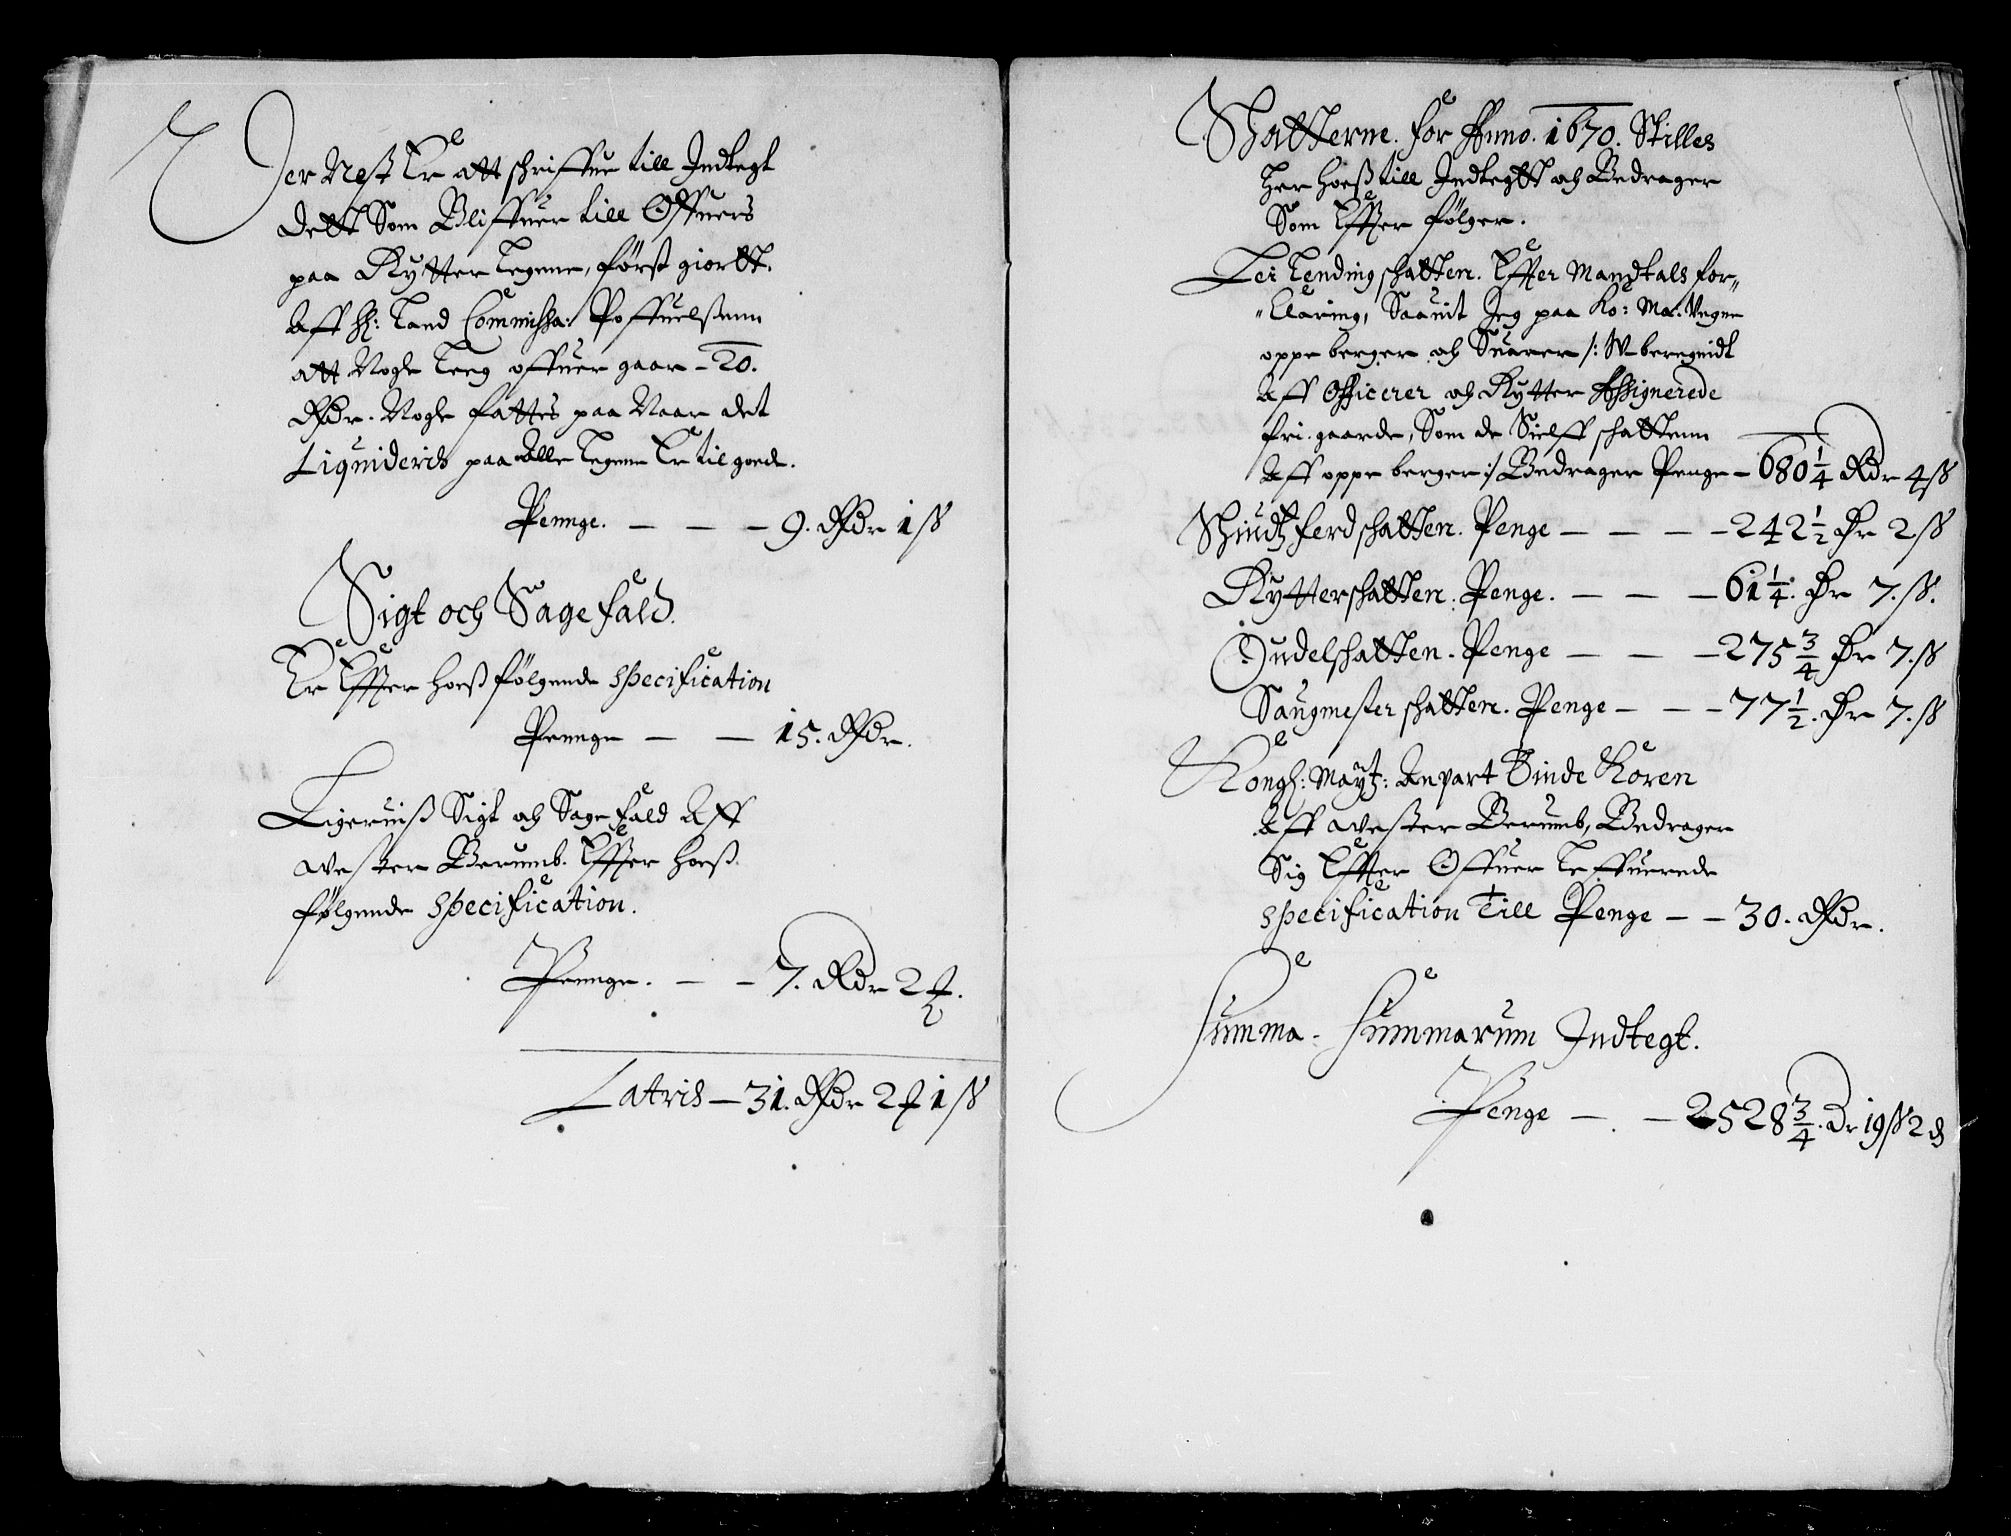 Der Nest Er att schriffue till Indtegt
dett Som Bliffuer till Offuers
paa Rytter Legene, først giortt.
Aff H: Land Commissa: Poffuelssenn
att Nogle Leeg offuer gaar - 20.
Rdr. Nogle fattes paa Naar det
Liquideris paa Alle Legene Er til goede.
Pennge. — — — 9. Rdr 1 ß
Sigt och Sagefald.
Er Effter hoes følgende specification
Pennge — — 15. Rdr.
Ligeruiss Sigt och Sagefald Aff
wester Berumb. Effter hoes
følgende specification.
Pennge. — — 7. Rdr 2 ₰.
Lateris — 31. Rdr 2 ₰ 1 ß
Schatterne. for Anno. 1670. Stilles
her hoess till Indtegtt och Bedrager
Som Effter følger.
Lei Lending schatten. Effter Mandtals for„
„klaring, Saauit Jeg paa Ko: Ma: Vegne
oppe berger och Suarer /: V-beregnidt
Aff Officerer och Rytter Assignerede
fri gaarde, Som de Sielff schattenn
Aff oppe berger :/ Bedrager Penge — 680 1/4 Rdr 4 ß
Schiudtz ferd schatten. Penge — — — 242 1/2 Dr 2 ß
Rytterschatten. Penge. — — — 61 1/4. Dr 7. ß.
Oudelschatten. Penge — — — 275 3/4 Dr 7. ß
Saugmester schatten. Penge — — — 77 1/2. Dr 7. ß
Kongl: Maytz: Anpart Tinde Koren
Aff wester Berumb, Bedrager
Sig Effter Offuer Leffuerende
specification Till Penge — — 30. Rdr.
Summa. Summarum Indtegt.
Penge — — 2528 3/4. Dr 19 ß 2 ₰